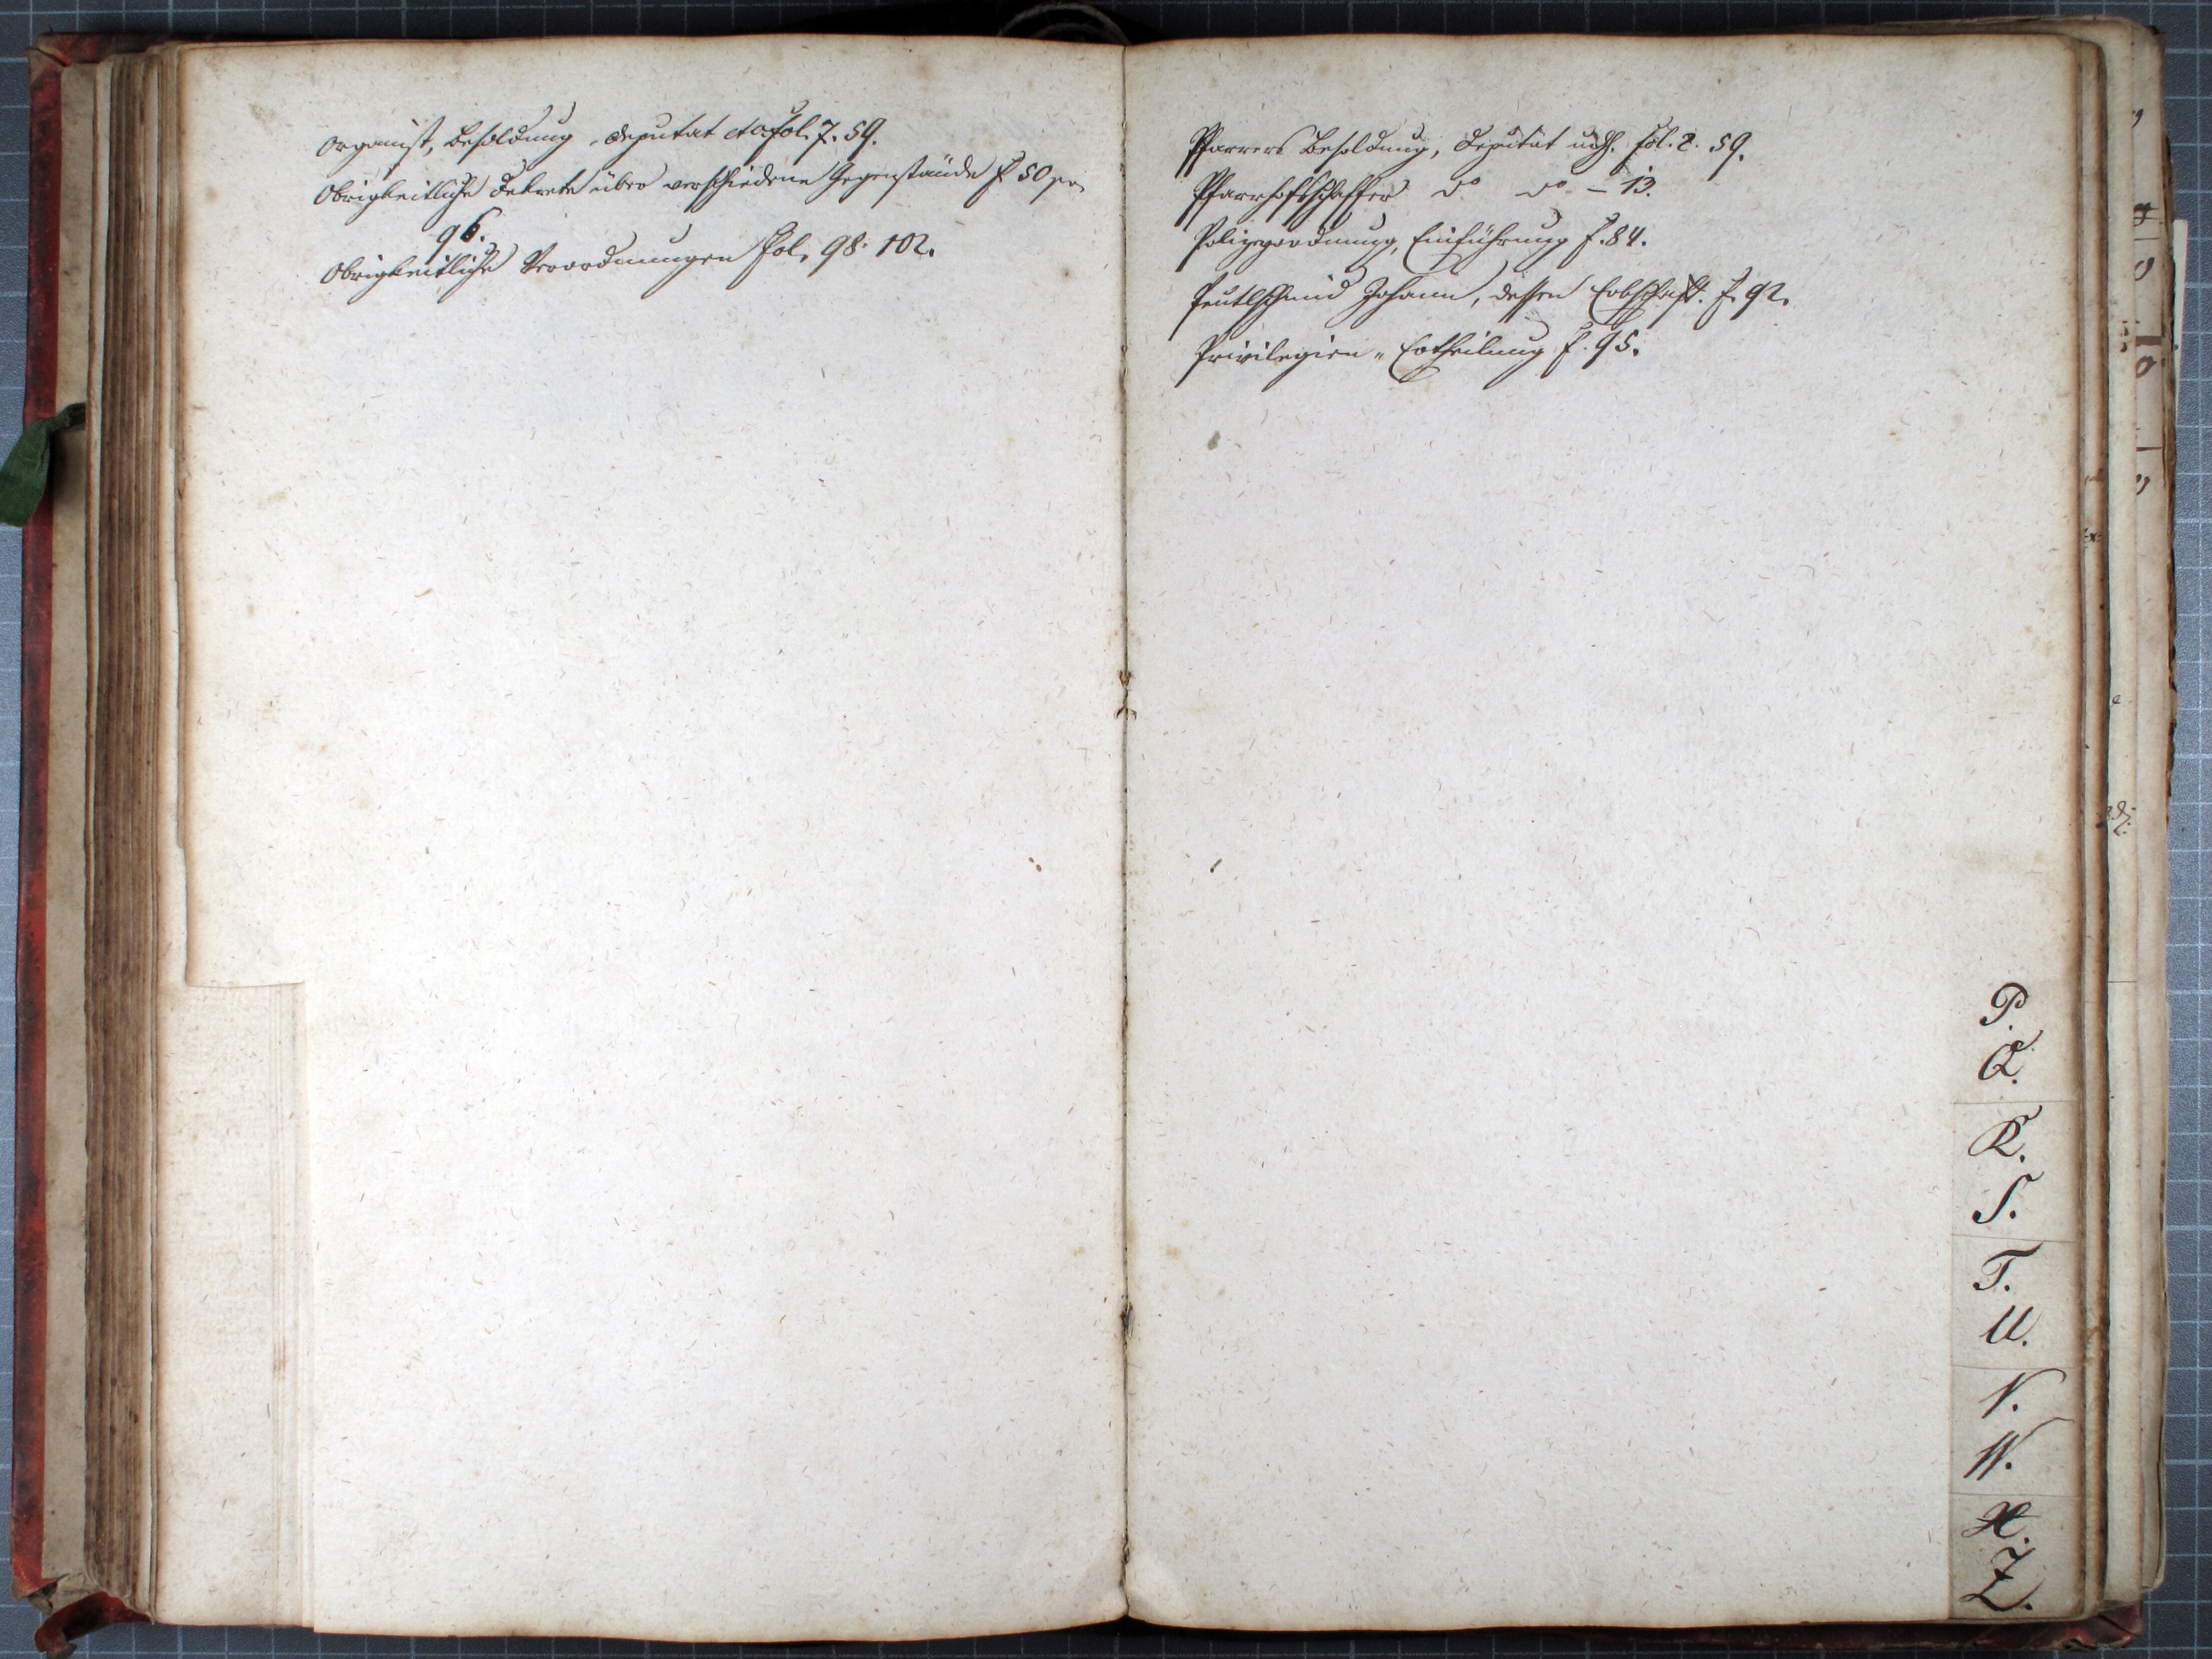 Organist, Besoldung, Deputat etc fol. 7. 59.
Obrigkeitliche Dekrete über verschiedene Gegenstände f 50
96.
Obrigkeitliche Verordnungen Fol. 98. 102.
Pfarrers Besoldung, Deputat fol. 2. 59.
Pfarrhofschaffer do do – 13.
Polizeyordnung, Einführung f. 84.
Johann, dessen Erbschaft. f. 92.
Privilegien-Ertheilung f. 95.
P.
Q.
R.
S.
T.
U.
V.
W.
X.
Z.